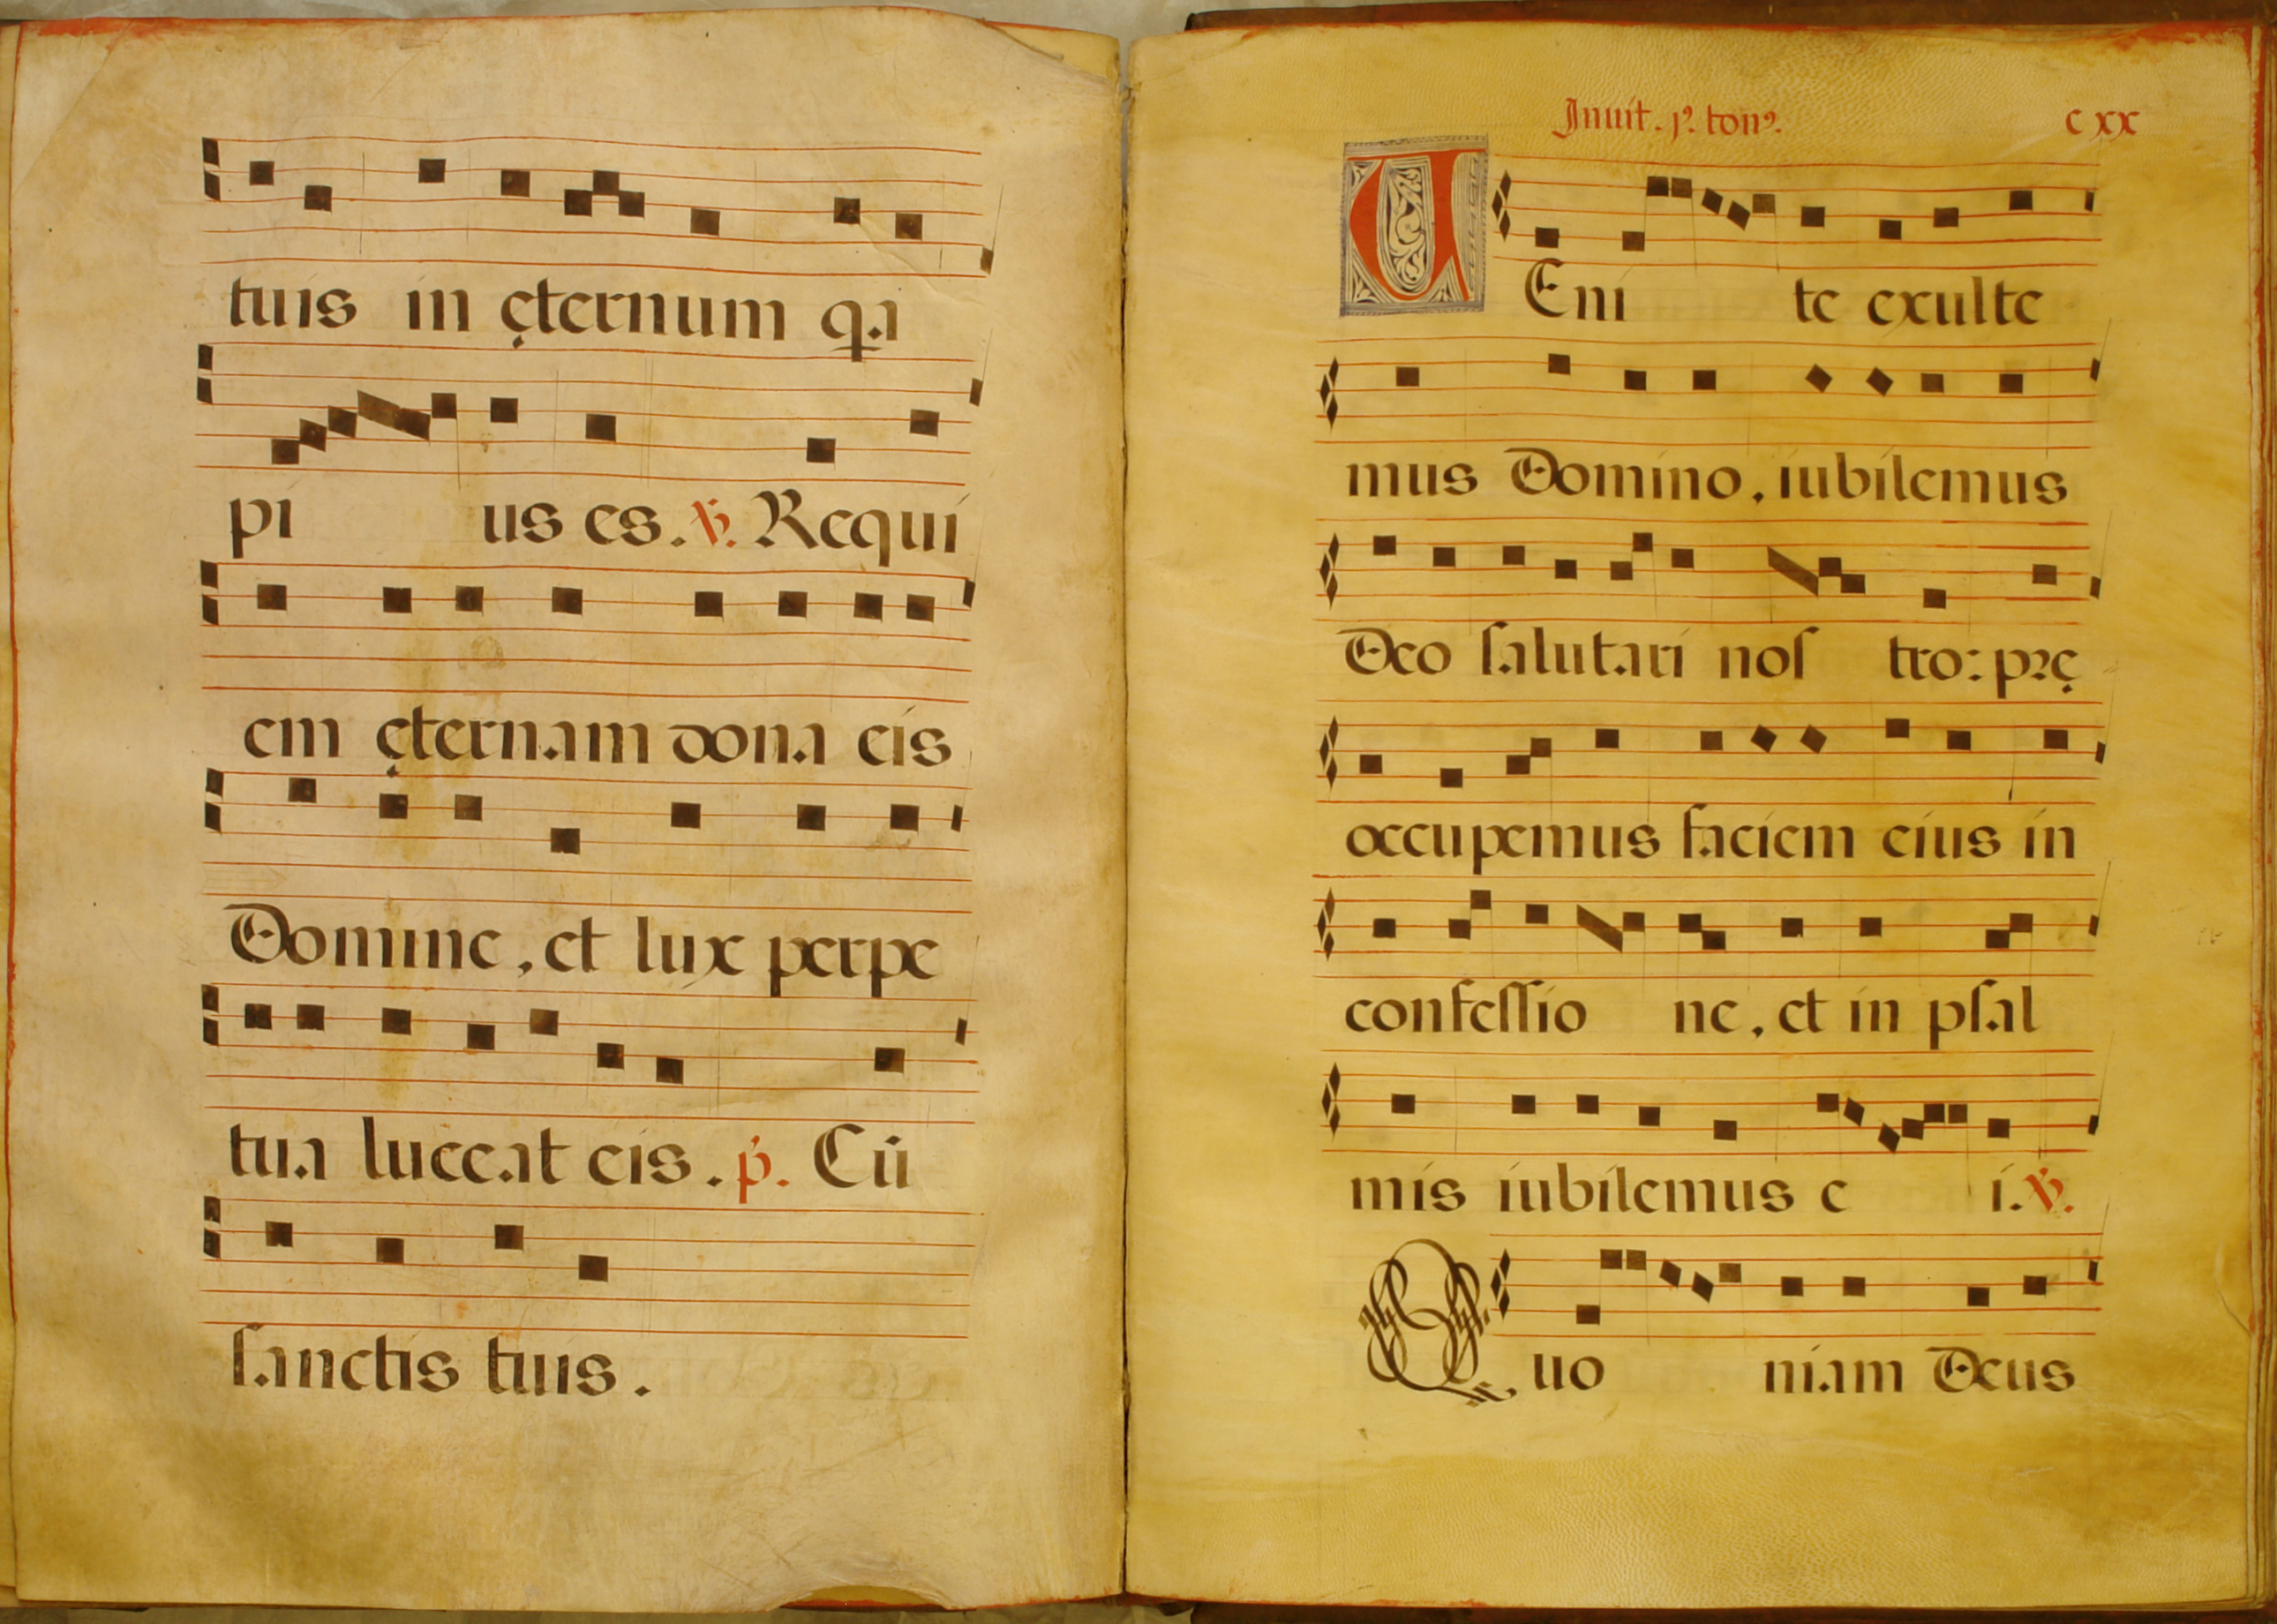 tuis in ęternum q.a
pi us es. ℣. Requi
em ęternam dona eis
Domine, et lux perpe
tua luceat eis. p̃. Cũ
ſanctis tuis.
Inuit. pꝰ. tonꝰ. CXX
VEni te exulte
mus Domino, iubilemus
Deo ſalutari noſ tro: prę
occupemus faciem eius in
confeſſio ne, et in pſal
mis iubilemus e i. ℣.
Quo niam Deus